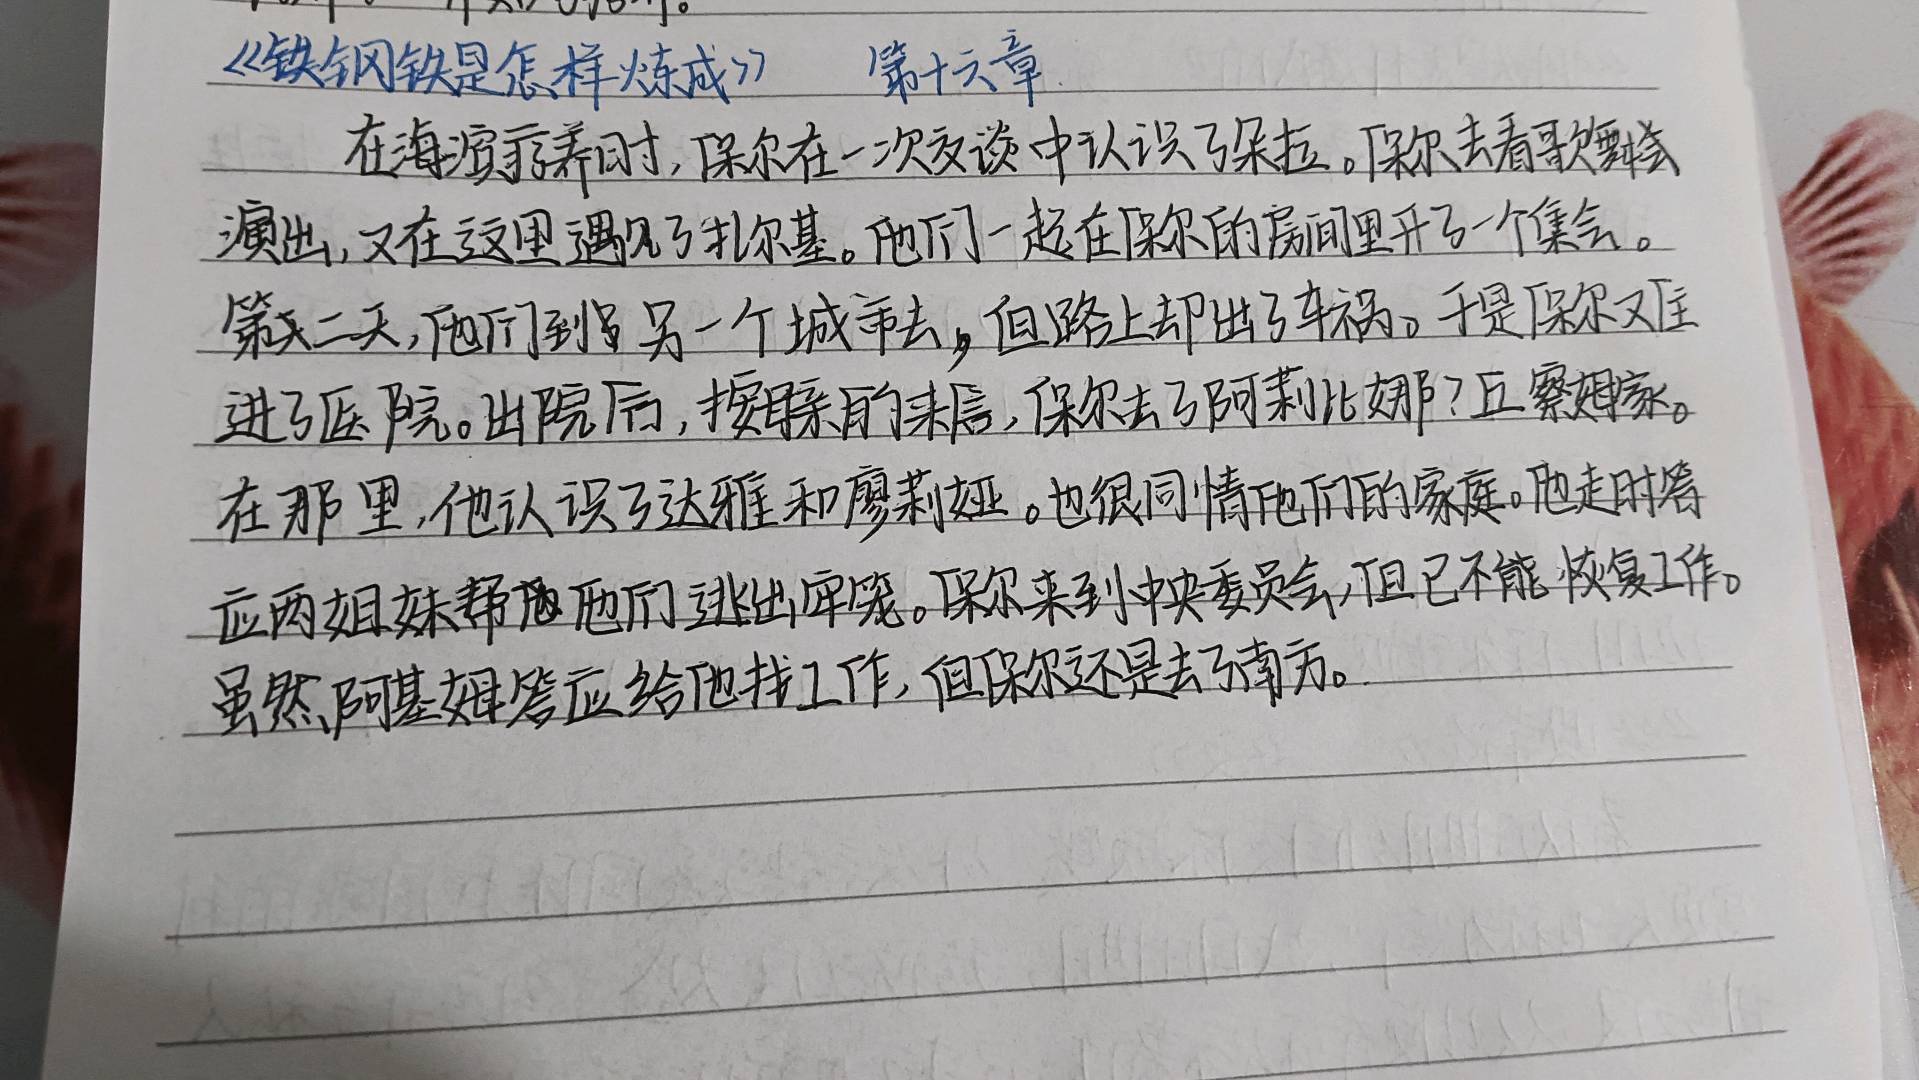 《铁钢铁是怎样炼成》 第十六章
在海滨疗养时,保尔在一次交谈中认识了朵拉。保尔去看歌舞会
演出,又在这里遇见了扎尔基。他们一起在保尔的房间里开了一个集会。
第二天,他们到另一个城市去,但路上却出了车祸。于是保尔又住
进了医院。出院后,按母亲的来信,保尔去了阿莉比娜?丘察姆家。
在那里,他认识了达雅和廖莉娅。也很同情他们的家庭。他走时答
应两姐妹帮他们逃出牢笼。保尔来到中央委员会,但已不能恢复工作。
虽然阿基姆答应给他找工作,但保尔还是去了南方。